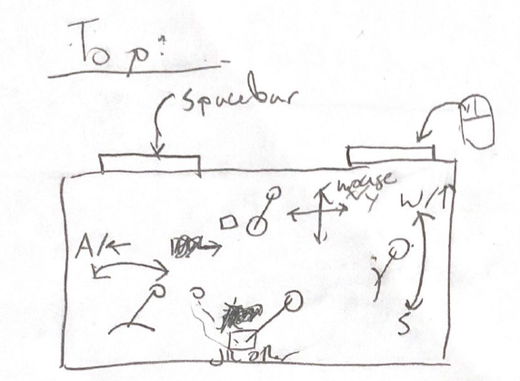 Top:
spacebar
mouse
XY
W/↑
A/←
S